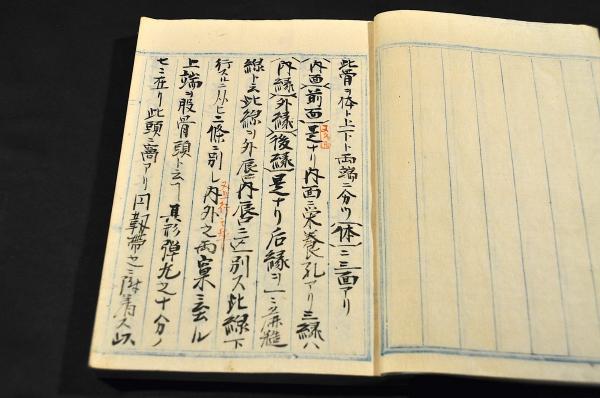 此骨ヲ体ト上下ト両端ニ分ツ(体)ニ三面アリ
(内面)(前面)是ナリ内面ニ栄養孔アリ三縁ハ
(内縁)(外縁)(後縁)是ナリ后縁ヲ一ニ糙
線ト云此線ヲ外唇内唇ニ区別ス此線下
行スルニ从ヒ二條ニ別レ内外之両窠ニ至ル
上端ヲ股骨頭ト云フ其形弾丸之十八分ノ
七ニ在リ此頭ニ窩アリ円靱帯之ニ附着ス此